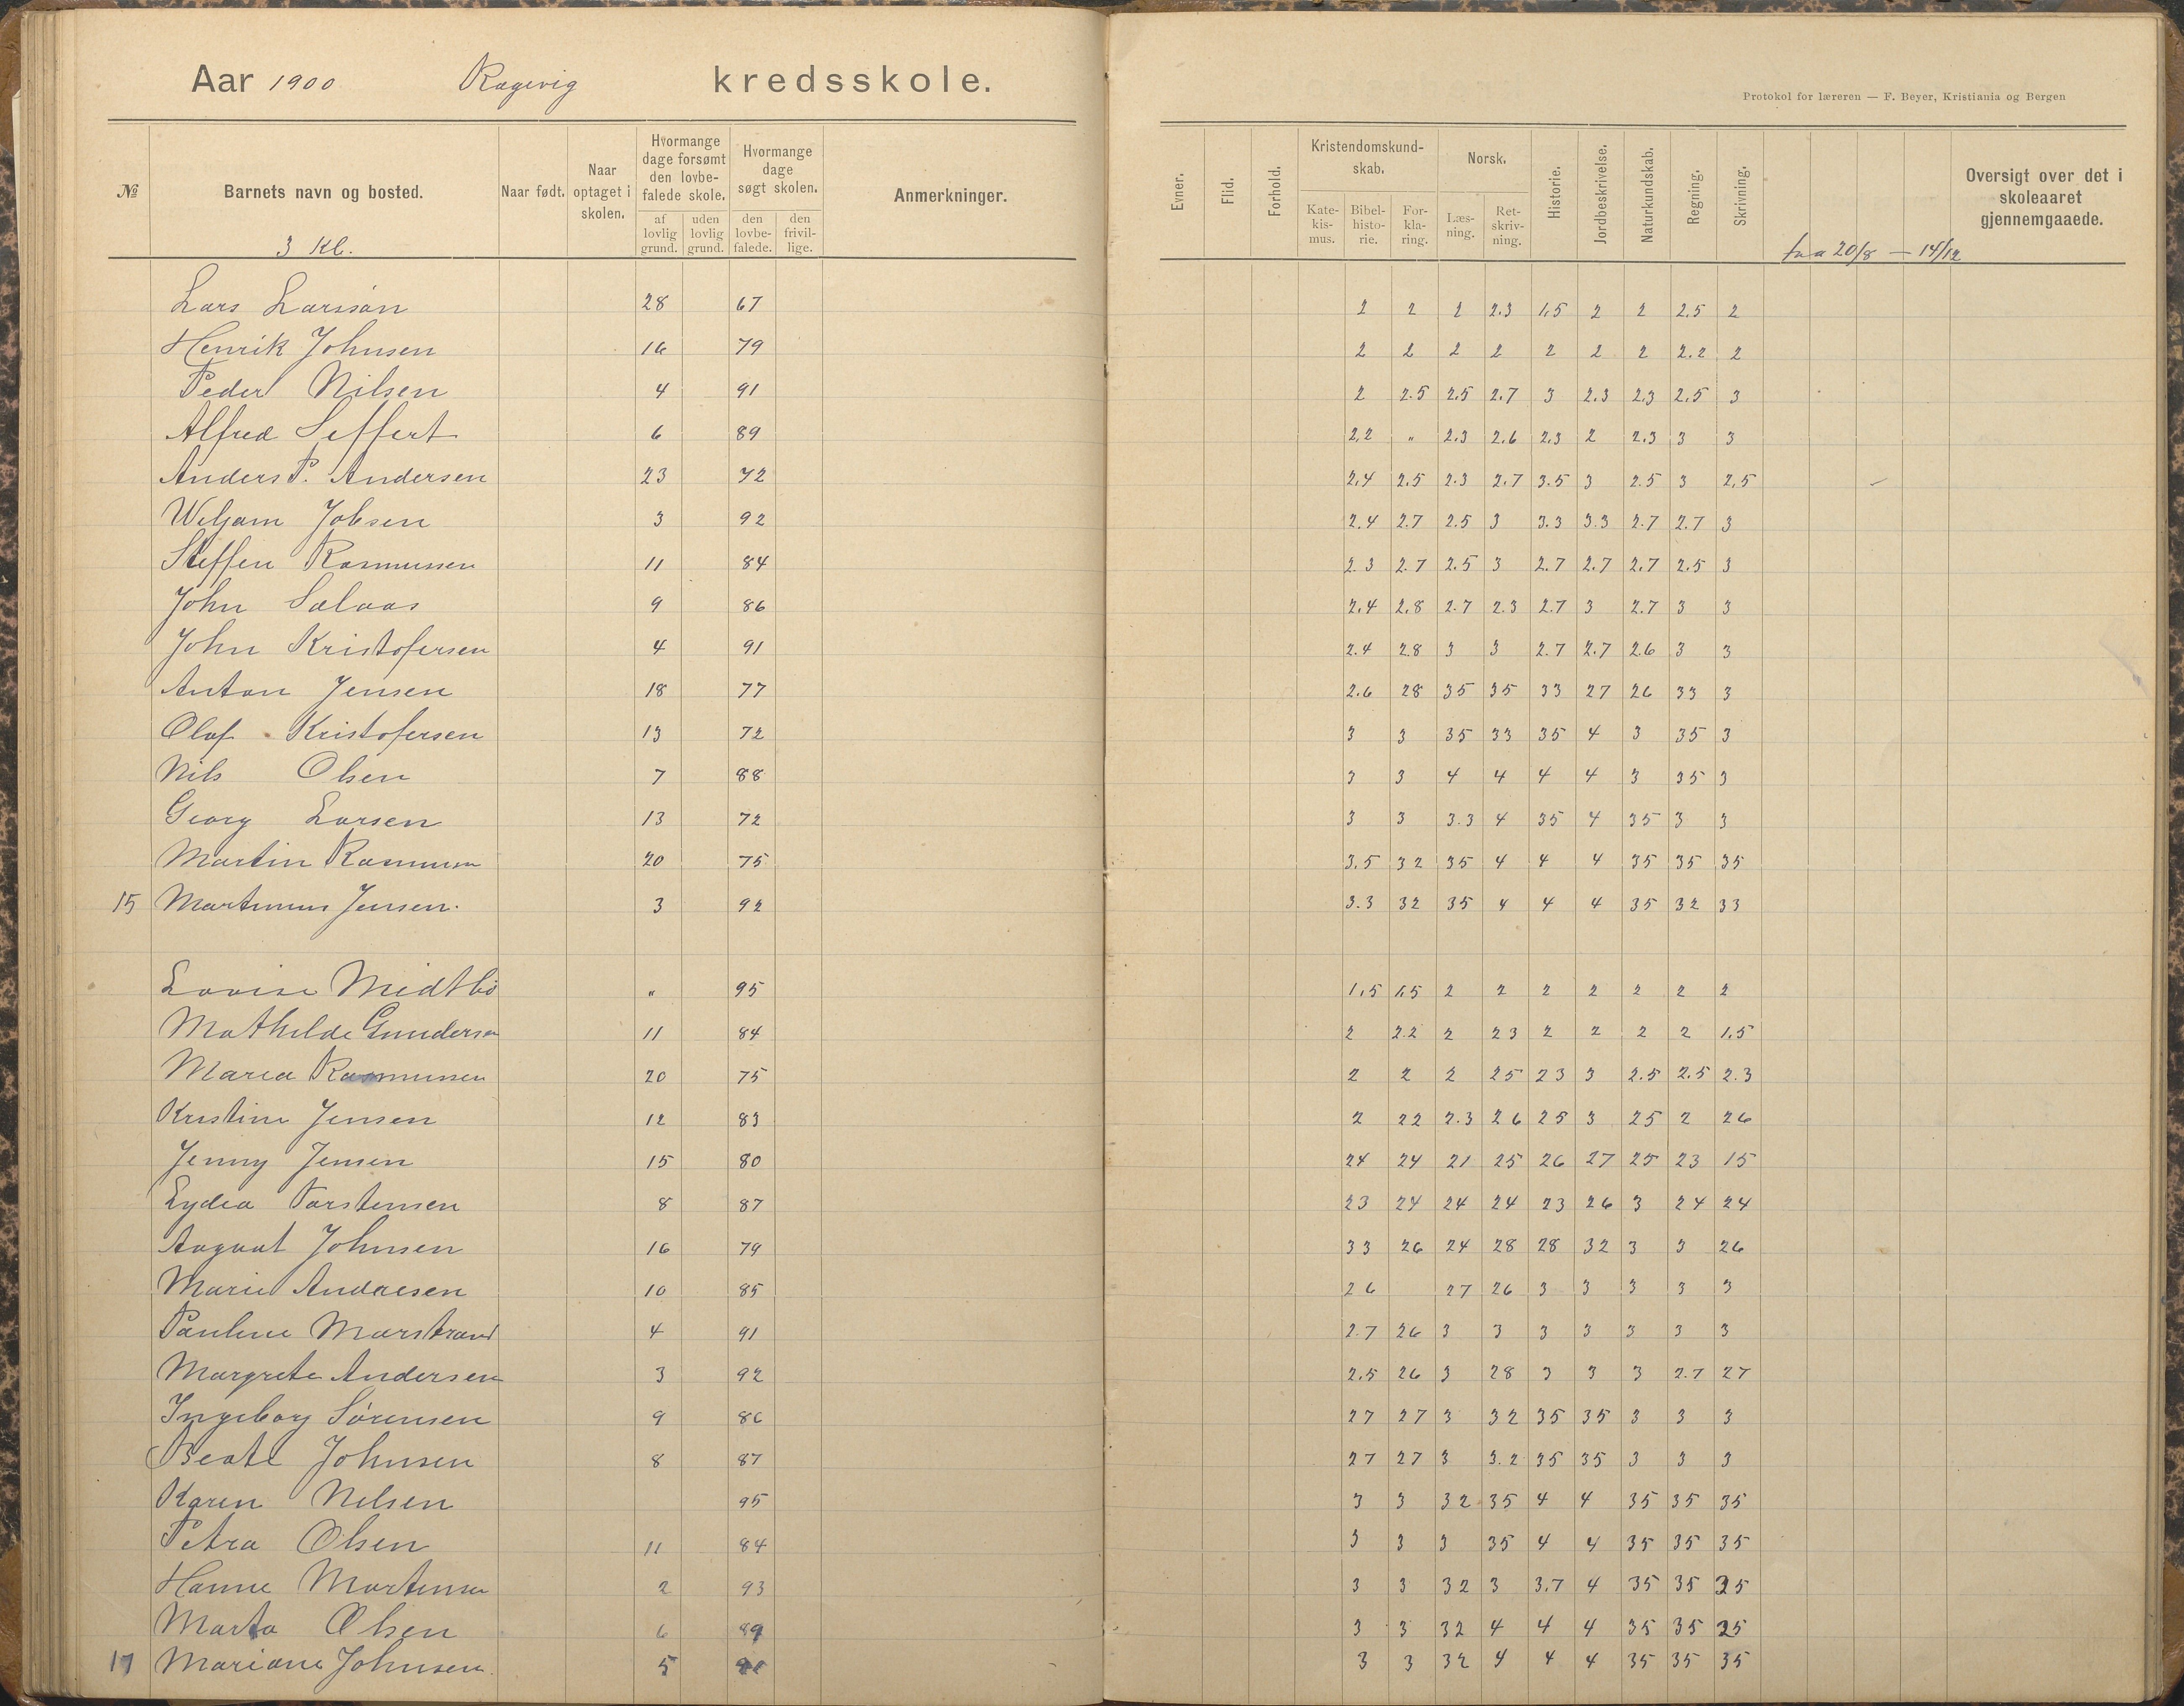 Aar 1900 Ragevig kredsskole.
Protokol for læreren — F. Beyer, Kristiania og Bergen
№ Barnets navn og bosted. Naar født. Naar optaget i skolen. Hvormange dage forsømt den lovbefalede skole. af lovlig grund. uden lovlig grund. Hvormange dage søgt skolen. den lovbefalede. den frivillige. Anmerkninger. Evner. Flid. Forhold. Kristendomskundskab. Katekismus. Bibelhistorie. Forklaring. Norsk. Læsning. Retskrivning. Historie. Jordbeskrivelse. Naturkundskab. Regning. Skrivning. Oversigt over det i skoleaaret gjennemgaaede.
3 Kl. fra 20/8 — 14/12
Lars Larssøn 28 67 2 2 2 2.3 1,5 2 2 2.5 2
Henrik Johnsen 16 79 2 2 2 2 2 2 2 2.2 2
Peder Nilsen 4 91 2 2.5 2.5 2.7 3 2.3 2.3 2.5 3
Alfred Seffert 6 89 2,2 " 2.3 2.6 2.3 2 2.3 3 3
Anders P. Andersen 23 72 2,4 2.5 2.3 2.7 3.5 3 2.5 3 2,5
Wiljam Jobsen 3 92 2.4 2.7 2.5 3 3.3 3.3 2.7 2.7 3
Steffen Rasmussen 11 84 2.3 2.7 2.5 3 2.7 2.7 2.7 2.5 3
John Salaas 9 86 2.4 2.8 2.7 2.3 2.7 3 2.7 3 3
John Kristofersen 4 91 2.4 2.8 3 3 2.7 2.7 2.6 3 3
Anton Jensen 18 77 2.6 28 35 35 33 27 26 33 3
Olaf Kristofersen 13 72 3 3 35 33 35 4 3 35 3
Nils Olsen 7 88 3 3 4 4 4 4 3 35 3
Georg Larsen 13 72 3 3 3.3 4 35 4 35 3 3
Martin Rasmussen 20 75 3,5 32 35 4 4 4 35 35 35
15 Martinius Jensen. 3 92 3.3 32 35 4 4 4 35 32 33
Lovise Midtbö " 95 1,5 1,5 2 2 2 2 2 2 2
Mathilde Gundersen 11 84 2 2.2 2 23 2 2 2 2 1.5
Maria Rasmussen 20 75 2 2 2 25 23 3 2.5 2.5 2.3
Kristine Jensen 12 83 2 22 2.3 26 25 3 25 2 26
Jenny Jensen 15 80 24 24 21 25 26 27 25 23 15
Lydia Torstensen 8 87 23 24 24 24 23 26 3 24 24
August Johnsen 16 79 33 26 24 28 28 32 3 3 26
Marie Andresen 10 85 26 27 26 3 3 3 3 3
Pauline Marstrand 4 91 2.7 26 3 3 3 3 3 3 3
Margrete Andersen 3 92 2.5 26 3 28 3 3 3 2.7 27
Ingeborg Sörensen 9 86 27 27 3 32 35 35 3 3 3
Beate Johnsen 8 87 27 27 3 3.2 35 35 3 3 3
Karen Nilsen 95 3 3 32 35 4 4 35 35 35
Petra Olsen 11 84 3 3 3 35 4 4 35 35 35
Hanne Martensen 2 93 3 3 32 3 3.7 4 35 35 35
Marta Olsen 6 89 3 3 32 4 4 4 35 35 35
17 Mariane Johnsen. 5 3 3 32 4 4 4 35 35 35